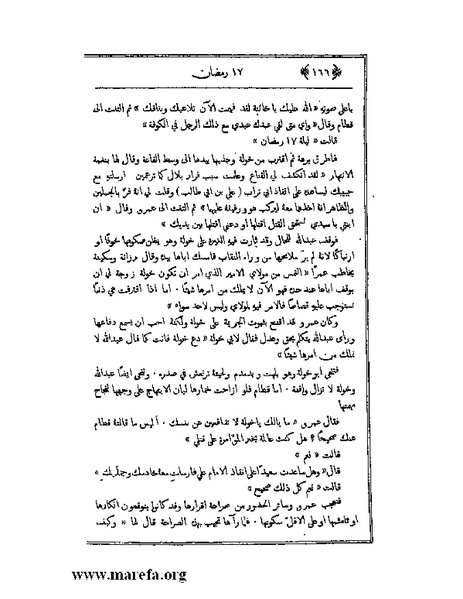 ﴿ ١٦٦ ﴾ ١٧ رمضان
باعلى صوته « الله عليك يا خائنة لقد فهمت الآن تلاعبك ونفاقك » ثم التفت الى
قطام وقال « واي متى لقي عبدك عبدي مع ذلك الرجل في الكوفة »
قالت « ليلة ١٧ رمضان »
فاطرق برهة ثم اقترب من خولة وجذبها بيدها الى وسط القاعة وقال لها بنغمة
الانتهار « لقد انكشف لي القناع وعلمت سبب فرار بلال كما تزعمين ارسلته مع
حبيبك ليساعده على انقاذ ابي تراب ( علي بن ابي طالب ) وقلت لي انه فر بالجملين
والظاهر انه اخذها معه ليركب هو ورفيقه عليها » ثم التفت الى عمرو وقال « ان
ابنتي يا سيدي تستحق القتل اقتلها او دعني اقتلها بين يديك »
فوقف عبدالله للحال وقد ثارت فيه الغيرة على خولة وهو يظن سكوتها خوفًا او
ارتباكًا لانه لم ير ملامحها من وراء النقاب فامسك اباها بين وقال برزانة وسكينة
يخاطب عمرًا « التمس من مولاي الامير الذي امر ان تكون خولة زوجة لي ان
يوقف اباها عند حده فهو الآن لا يملك من امرها شيئًا . اما اذا اقترفت هي ذنبًا
تستوجب عليه قصاصًا فالامر فيه لمولاي وليس لاحد سواه »
وكان عمرو قد اقتنع بثبوت الجريمة على خولة ولكنه احب ان يسمع دفاعها
ورأى عبدالله يتكلم بحق وعدل فقال لابي خولة « دع خولة فانت كما قال عبدالله لا
تملك من امرها شيئًا »
فتنحى ابو خولة وهو يلهث ويدمدم ولحيته ترتعش في صدره . وتنحى ايضًا عبدالله
وخولة لا تزال واقفة . اما قطام فلو ازاحت خمارها لبان الابتهاج على وجهها لنجاح
مهمتها
فقال عمرو « ما بالك يا خولة لا تدافعين عن نفسك . أليس ما قالته قطام
عنك صحيحًا ؟ هل كنت عالمة بخبر المؤامرة على قتلي »
قالت « نعم »
قال « وهل ساعدت سعيدًا على انقاذ الامام علي فارسلت معه خادمك وجمليك »
قالت « نعم كل ذلك صحيح »
فتعجب عمرو وسائر الحضور من صراحة اقرارها وقد كانوا يتوقعون انكارها
او تلعثمها او على الاقل سكوتها . فلما رآها تجيب بهذه الصراحة قال لها « وكيف
www.marefa.org